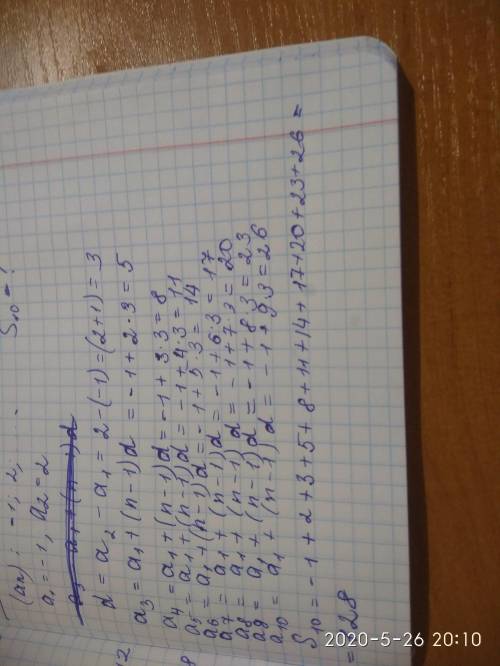 (an): -1; 2, ... S10 = ?
a1 = -1, a2 = 2
d = a2 - a1 = 2 - (-1) = (2+1) = 3
a3 = a1 + (n-1)d = -1 + 2·3 = 5
a4 = a1 + (n-1)d = -1 + 3·3 = 8
a5 = a1 + (n-1)d = -1 + 4·3 = 11
a6 = a1 + (n-1)d = -1 + 5·3 = 14
a7 = a1 + (n-1)d = -1 + 6·3 = 17
a8 = a1 + (n-1)d = -1 + 7·3 = 20
a9 = a1 + (n-1)d = -1 + 8·3 = 23
a10 = a1 + (n-1)d = -1 + 9·3 = 26
S10 = -1 + 2 + 3 + 5 + 8 + 11 + 14 + 17 + 20 + 23 + 26 =
= 128
12
8
2020-5-26 20:10